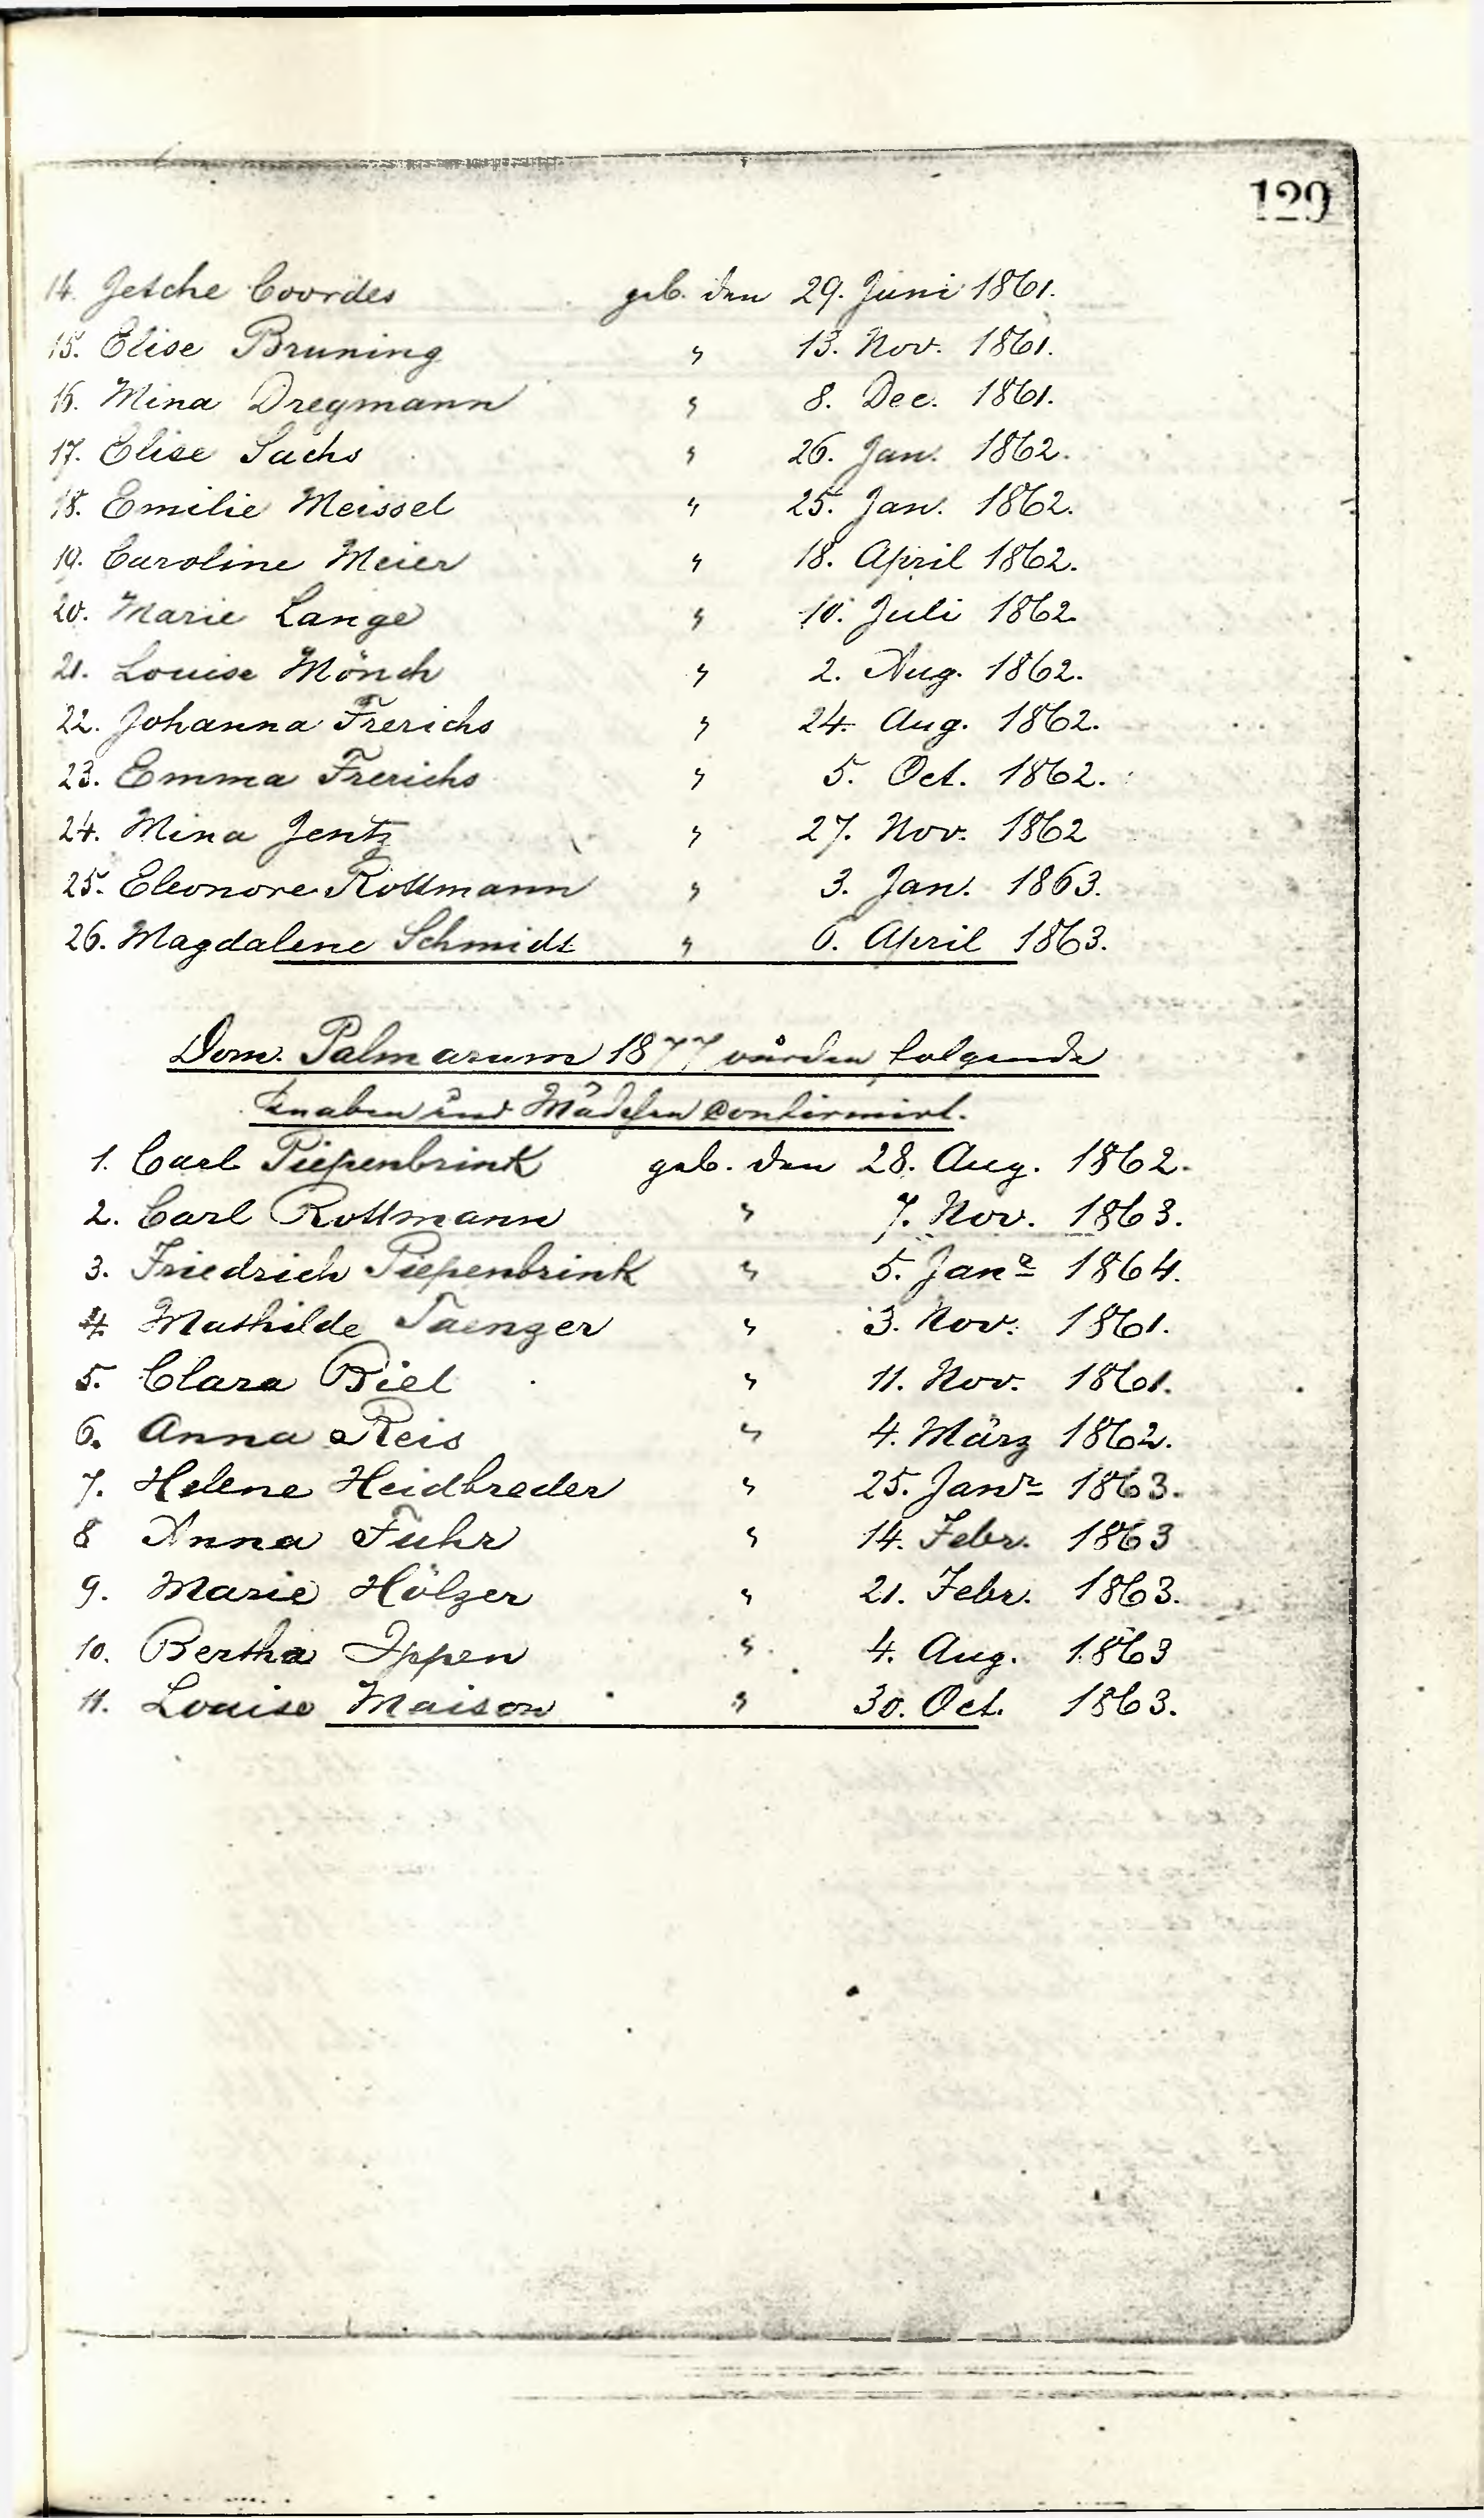 129
14. Jetche Coordes geb. den 29. Juni 1861.
15. Elise Bruning " 13. Nov. 1861.
16. Mina Dregmann " 8. Dec. 1861.
17. Elise Sachs " 26. Jan. 1862.
18. Emilie Meissel " 25. Jan. 1862.
19. Caroline Meier " 18. April 1862.
20. Marie Lange " 10. Juli 1862.
21. Louise Mönch " 2. Aug. 1862.
22. Johanna Frerichs " 24. Aug. 1862.
23. Emma Frerichs " 5. Oct. 1862.
24. Mina Jentz " 27. Nov. 1862
25. Eleonore Rottmann " 3. Jan. 1863.
26. Magdalene Schmidt " 6. April 1863.
Dom. Palmarum 1877 wurden folgende
Knaben und Mädchen confirmirt.
1. Carl Piepenbrink geb. den 28. Aug. 1862.
2. Carl Rottmann " 7. Nov. 1863.
3. Friedrich Piepenbrink " 5. Janr 1864.
4 Mathilde Taenzer " 3. Nov. 1861.
5. Clara Biel " 11. Nov. 1861.
6. Anna Reis " 4. März 1862.
7. Helene Heidbreder " 25. Janr 1863.
8 Anna Fuhr " 14. Febr. 1863
9. Marie Hölzer " 21. Febr. 1863.
10. Bertha Ippen " 4. Aug. 1863
11. Louise Maison " 30. Oct. 1863.